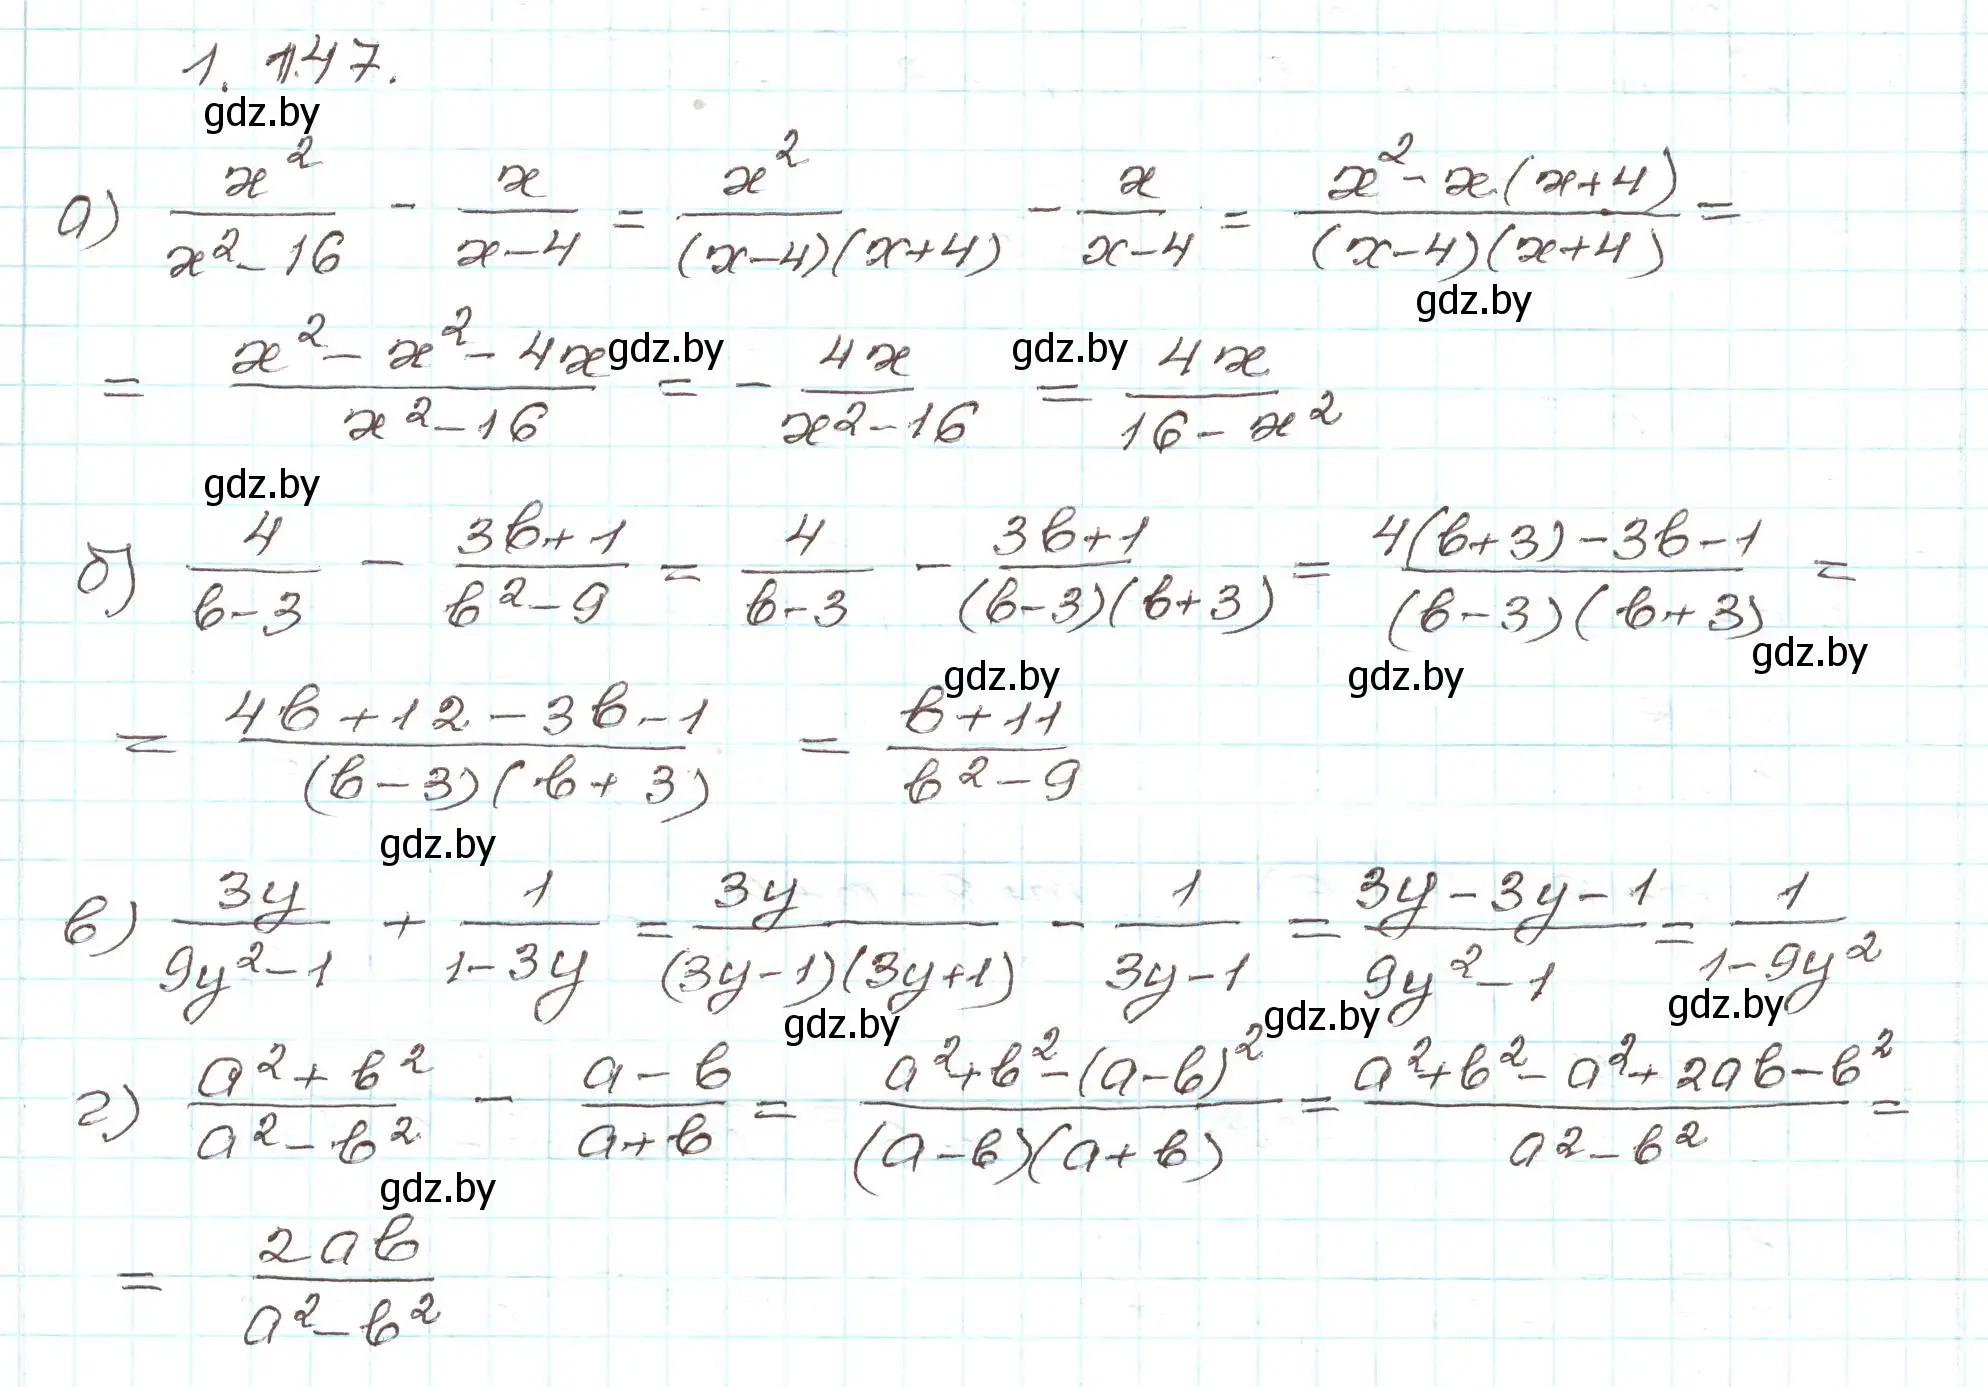 1.147.
gdz.by
а) x²/(x²-16) - x/(x-4) = x²/((x-4)(x+4)) - x/(x-4) = (x²-x(x+4))/((x-4)(x+4)) =
gdz.by
= (x²-x²-4x)/(x²-16) = -4x/(x²-16) = 4x/(16-x²)
gdz.by gdz.by
gdz.by
б) 4/(b-3) - (3b+1)/(b²-9) = 4/(b-3) - (3b+1)/((b-3)(b+3)) = (4(b+3)-3b-1)/((b-3)(b+3)) =
gdz.by gdz.by gdz.by
= (4b+12-3b-1)/((b-3)(b+3)) = (b+11)/(b²-9)
gdz.by
в) 3y/(9y²-1) + 1/(1-3y) = 3y/((3y-1)(3y+1)) - 1/(3y-1) = (3y-3y-1)/(9y²-1) = 1/(1-9y²)
gdz.by gdz.by gdz.by
г) (a²+b²)/(a²-b²) - (a-b)/(a+b) = (a²+b²-(a-b)²)/((a-b)(a+b)) = (a²+b²-a²+2ab-b²)/(a²-b²) =
gdz.by
= 2ab/(a²-b²)